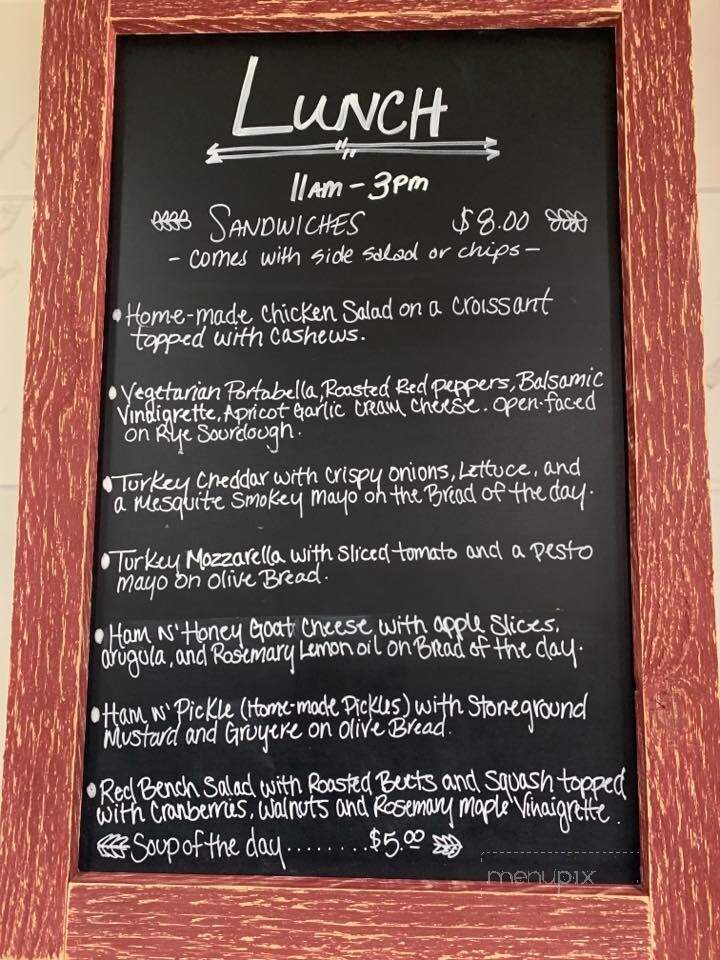 LUNCH
11AM - 3PM
SANDWICHES $8.00
- comes with side salad or chips -
• Home-made Chicken Salad on a Croissant
topped with Cashews.
• Vegetarian Portabella, Roasted Red peppers, Balsamic
Vinaigrette, Apricot Garlic Cream Cheese. Open-faced
on Rye Sourdough.
• Turkey Cheddar with Crispy onions, Lettuce, and
a Mesquite Smokey Mayo on the Bread of the day.
• Turkey Mozzarella with Sliced tomato and a pesto
mayo on Olive Bread.
• Ham N' Honey Goat Cheese with apple Slices,
arugula, and Rosemary Lemon oil on Bread of the day.
• Ham N' Pickle (Home-made Pickles) with Stoneground
Mustard and Gruyere on Olive Bread.
• Red Bench Salad with Roasted Beets and Squash topped
with Cranberries, Walnuts and Rosemary Maple Vinaigrette.
Soup of the day........$5.00
menupix